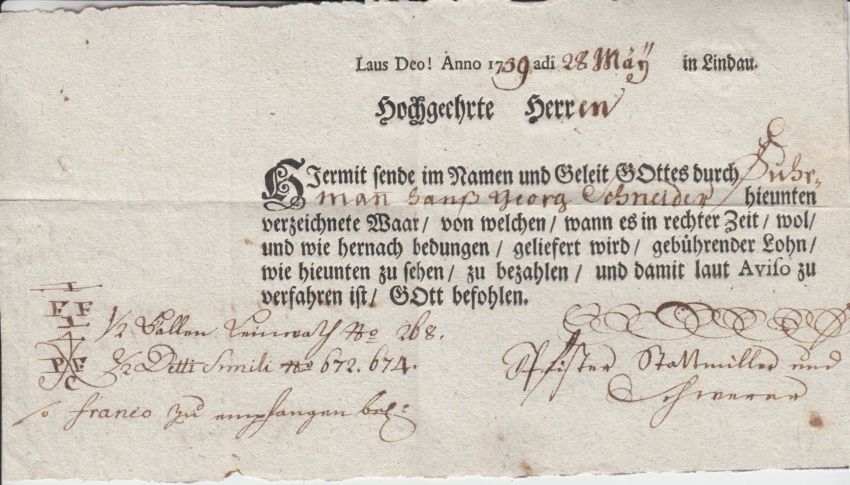 Laus Deo! Anno 1739 adi 28 Maÿ in Lindau.
Hochgeehrte Herren
HJermit sende im Namen und Geleit GOttes durch Fuhr-
man Hanß Georg Schneider hieunten
verzeichnete Waar / von welchen / wann es in rechter Zeit / wol /
und wie hernach bedungen / geliefert wird / gebührender Lohn /
wie hieunten zu sehen / zu bezahlen / und damit laut Aviso zu
verfahren ist / GOtt befohlen.
F F 1/2 Ballen Leinwath No 268.
P F C 2/2 Detti Simili No 672. 674.
franco zu empfangen
Pfister Stattmiller und
Schwerer